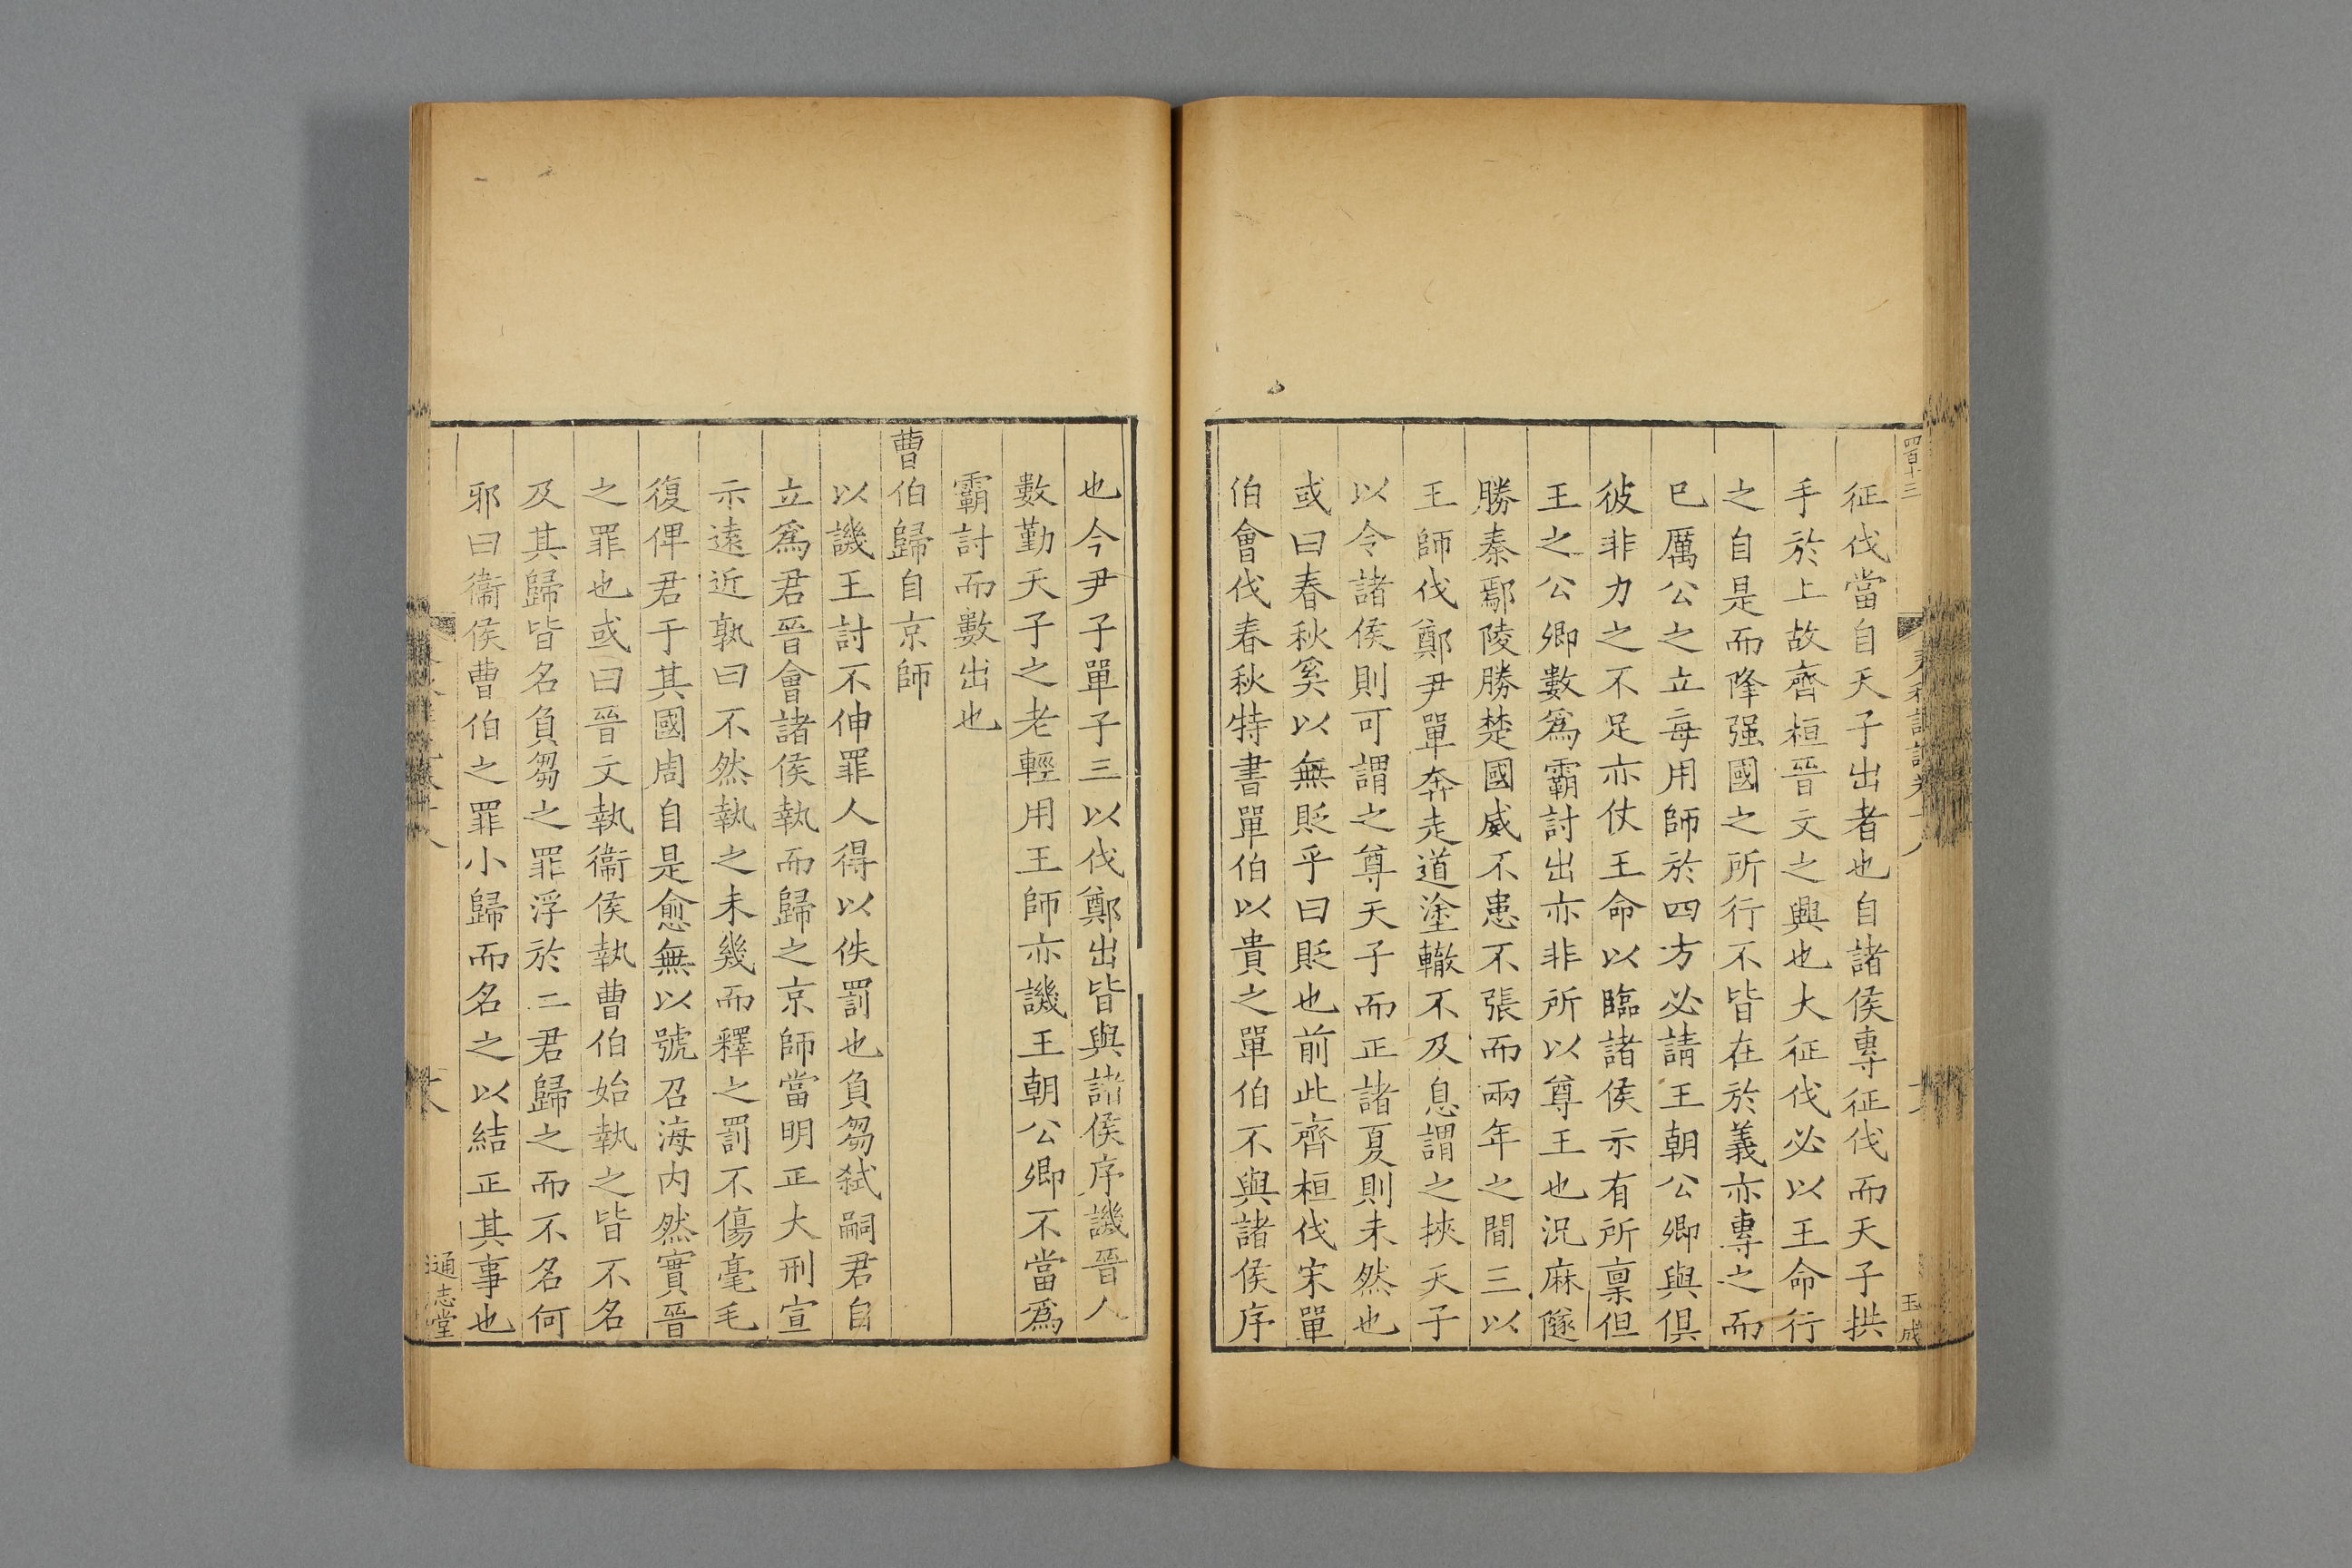 征伐當自天子出者也自諸侯專征伐而天子拱
手於上故齊桓晉文之興也大征伐必以王命行
之自是而降强國之所行不皆在於義亦專之而
巳厲公之立每用師於四方必請王朝公卿與俱
彼非力之不足亦仗王命以臨諸侯示有所稟但
王之公卿數爲霸討出亦非所以尊王也況麻隧
勝秦鄢陵勝楚國威不患不張而兩年之間三以
王師伐鄭尹單奔走道塗轍不及息謂之挾天子
以令諸侯則可謂之尊天子而正諸夏則未然也
或曰春秋奚以無貶乎曰貶也前此齊桓伐宋單
伯會伐春秋特書單伯以貴之單伯不與諸侯序
也今尹子單子三以伐鄭出皆與諸侯序譏晉人
數勤天子之老輕用王師亦譏王朝公卿不當爲
霸討而數出也
曹伯歸自京師
以譏王討不伸罪人得以佚罰也負芻弑嗣君自
立爲君晉會諸侯執而歸之京師當明正大刑宣
示遠近孰曰不然執之未幾而釋之罰不傷毫毛
復俾君于其國周自是愈無以號召海内然實晉
之罪也或曰晉文執衞侯執曹伯始執之皆不名
及其歸皆名負芻之罪浮於二君歸之而不名何
邪曰衞侯曹伯之罪小歸而名之以結正其事也
通志堂